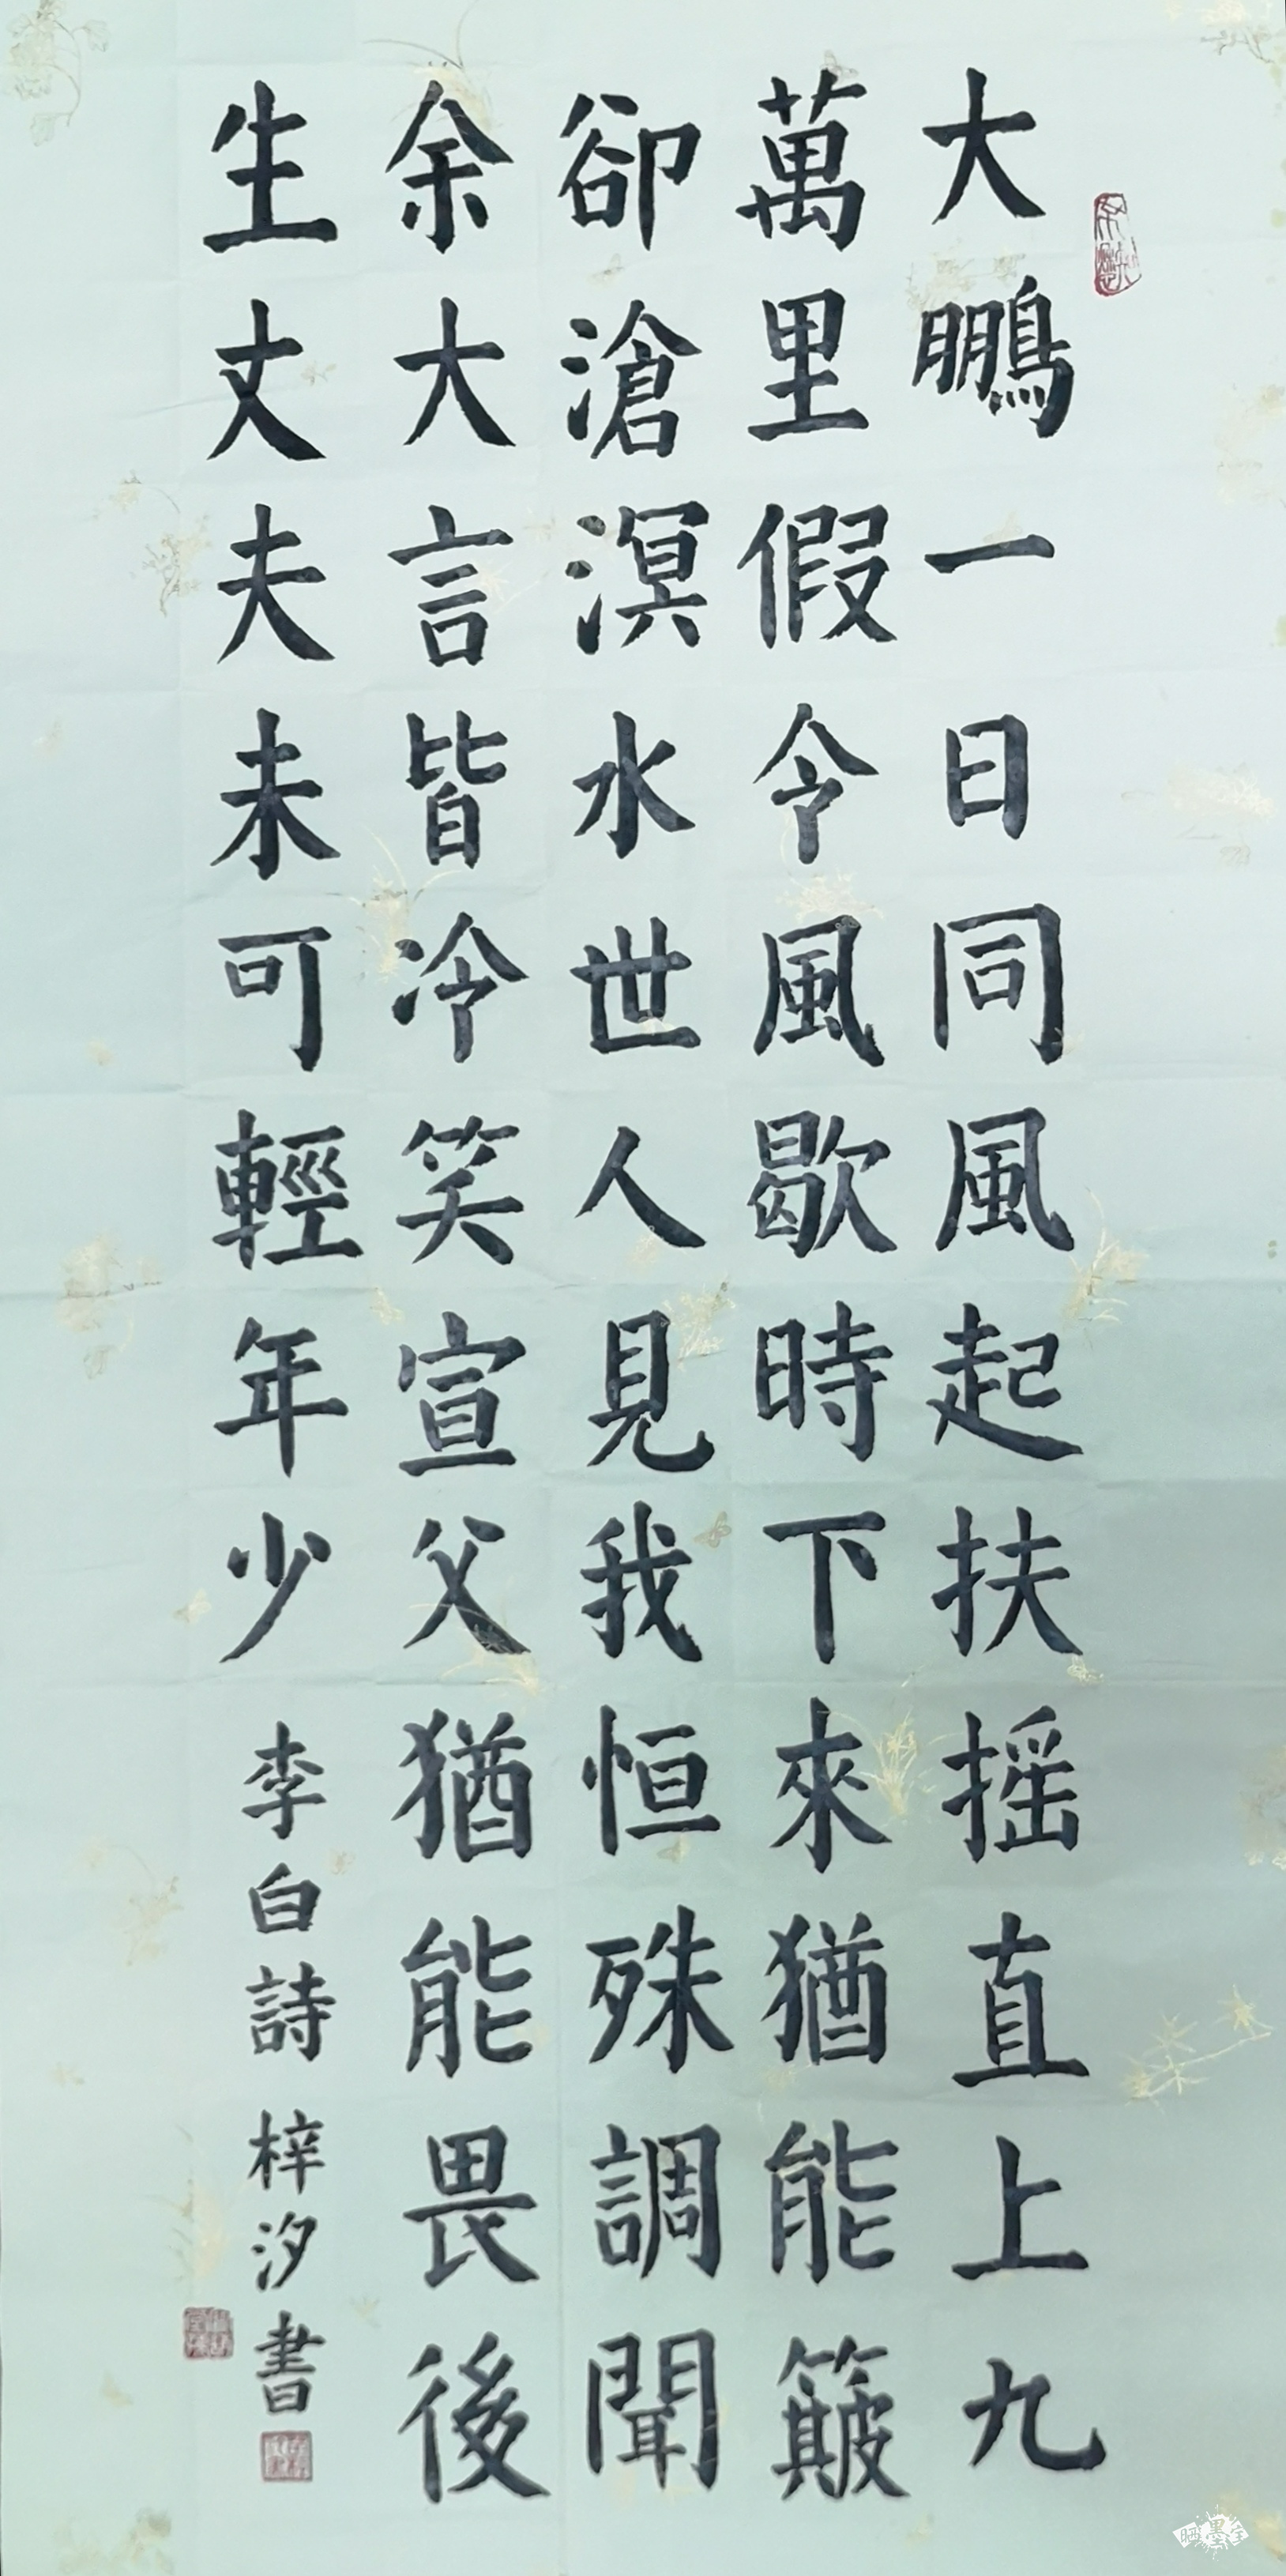 大鵬一日同風起扶摇直上九
萬里假令風歇時下來猶能簸
卻滄溟水世人見我恒殊調聞
余大言皆冷笑宣父猶能畏後
生丈夫未可輕年少
李白詩 梓汐書